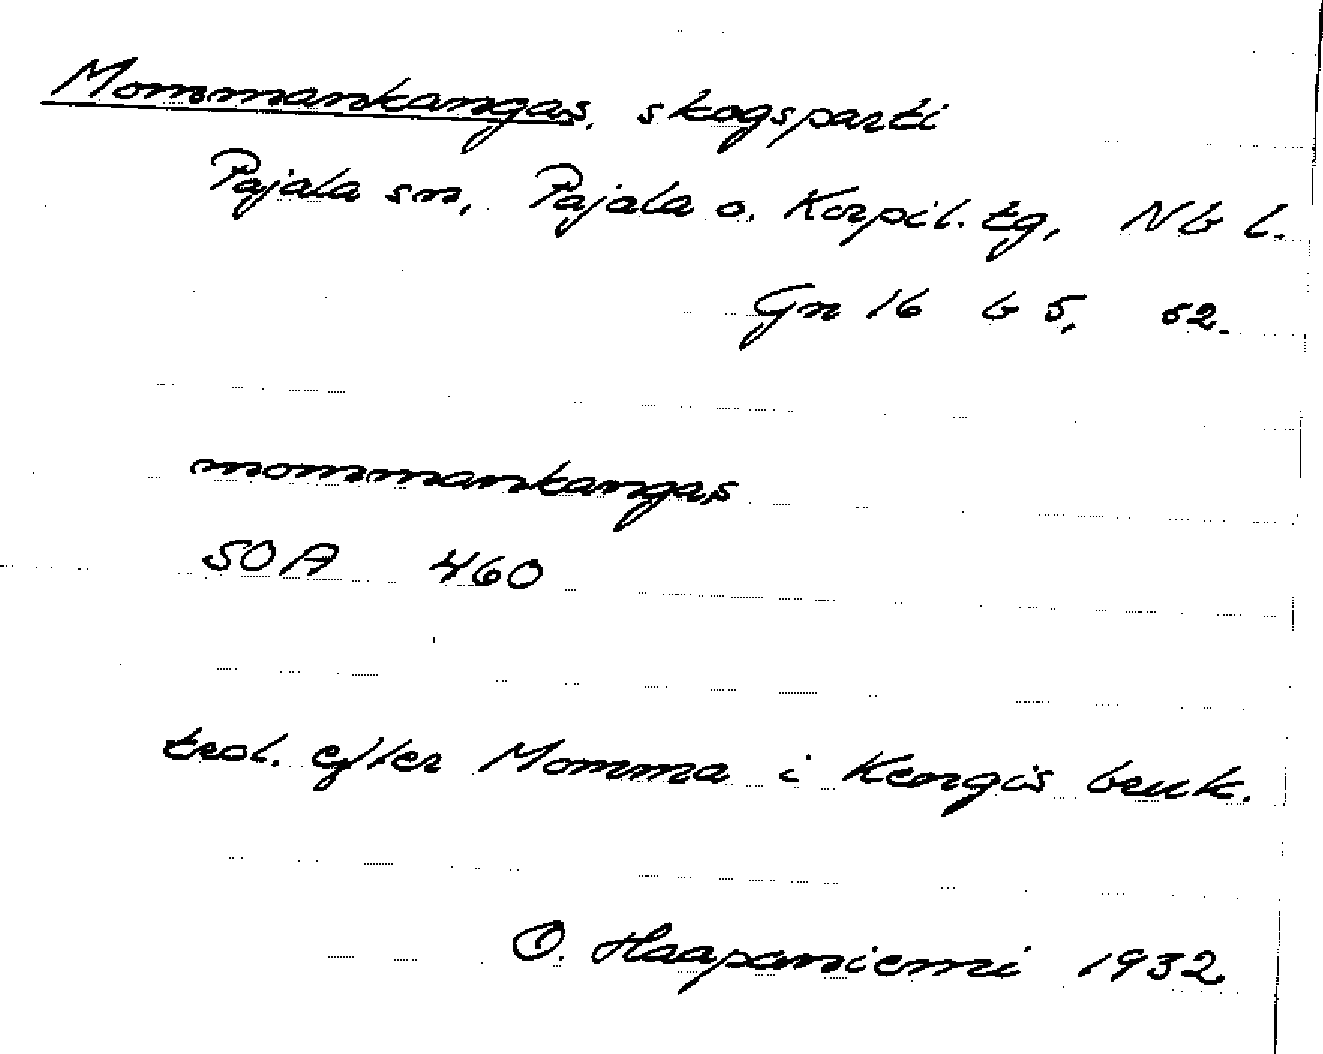 Mommankangas, skogsparti
Pajala sn, Pajala o. Korpil. tg, Nb l.
Gn 16 b 5, 52.
mommankangas
SOA 460
trol. efter Momma i Kengis bruk.
O. Haapaniemi 1932